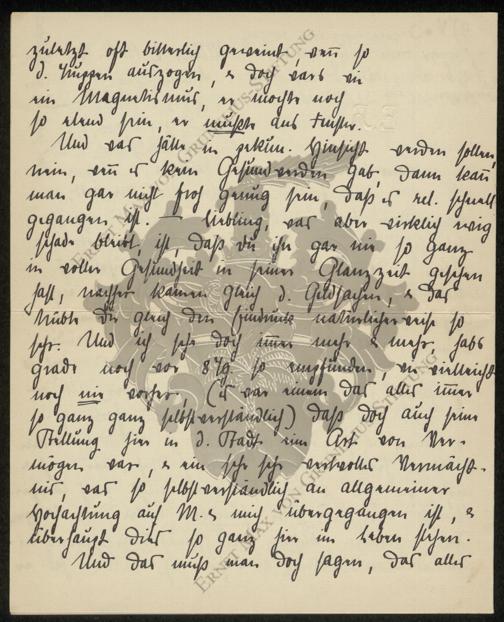 zuletzt oft bitterlich geweint, wenn so
d. Truppen auszogen, & doch wars wie
ein Magnetismus, er mochte noch
so elend sein, er mußte ans Fenster.
Und was hätte in pekun. Hinsicht werden sollen,
nein, wenn es kein Gesundwerden gab, dann kann
man gar nicht froh genug sein, daß es rel. schnell
gegangen ist. — Liebling, was aber wirklich ewig
schade bleibt ist, daß Du ihn gar nie so ganz
in voller Gesundheit in seiner Glanzzeit gesehen
hast, nachher kamen gleich d. Geldsachen, & das
trübte Dir gleich den Eindruck natürlicherweise so
sehr. Und ich sehe doch immer mehr & mehr, habs
grade noch vor so empfunden wie vielleicht
noch nie vorher, (es war einem das alles immer
so ganz ganz selbstverständlich) daß doch auch seine
Stellung hier in d. Stadt eine Art von Ver-
mögen war, & ein sehr sehr wertvolles Vermächt-
nis, was so selbstverständlich an allgemeiner
Hochachtung auf M. & mich übergegangen ist, &
überhaupt dies so ganz hier im Leben stehen.
Und das muß man doch sagen, das alles
ERNST MAX VON GRUNELIUS-STIFTUNG
ERNST MAX VON GRUNELIUS-STIFTUNG